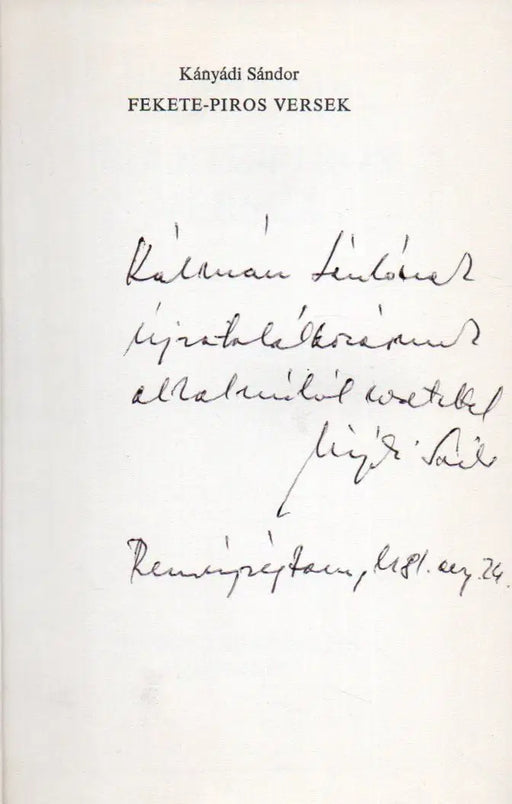 Kányádi Sándor
FEKETE-PIROS VERSEK
Kálmán Sándornak
újratalálkozásunk
alkalmából szeretettel
Sándor
1981. aug. 24.